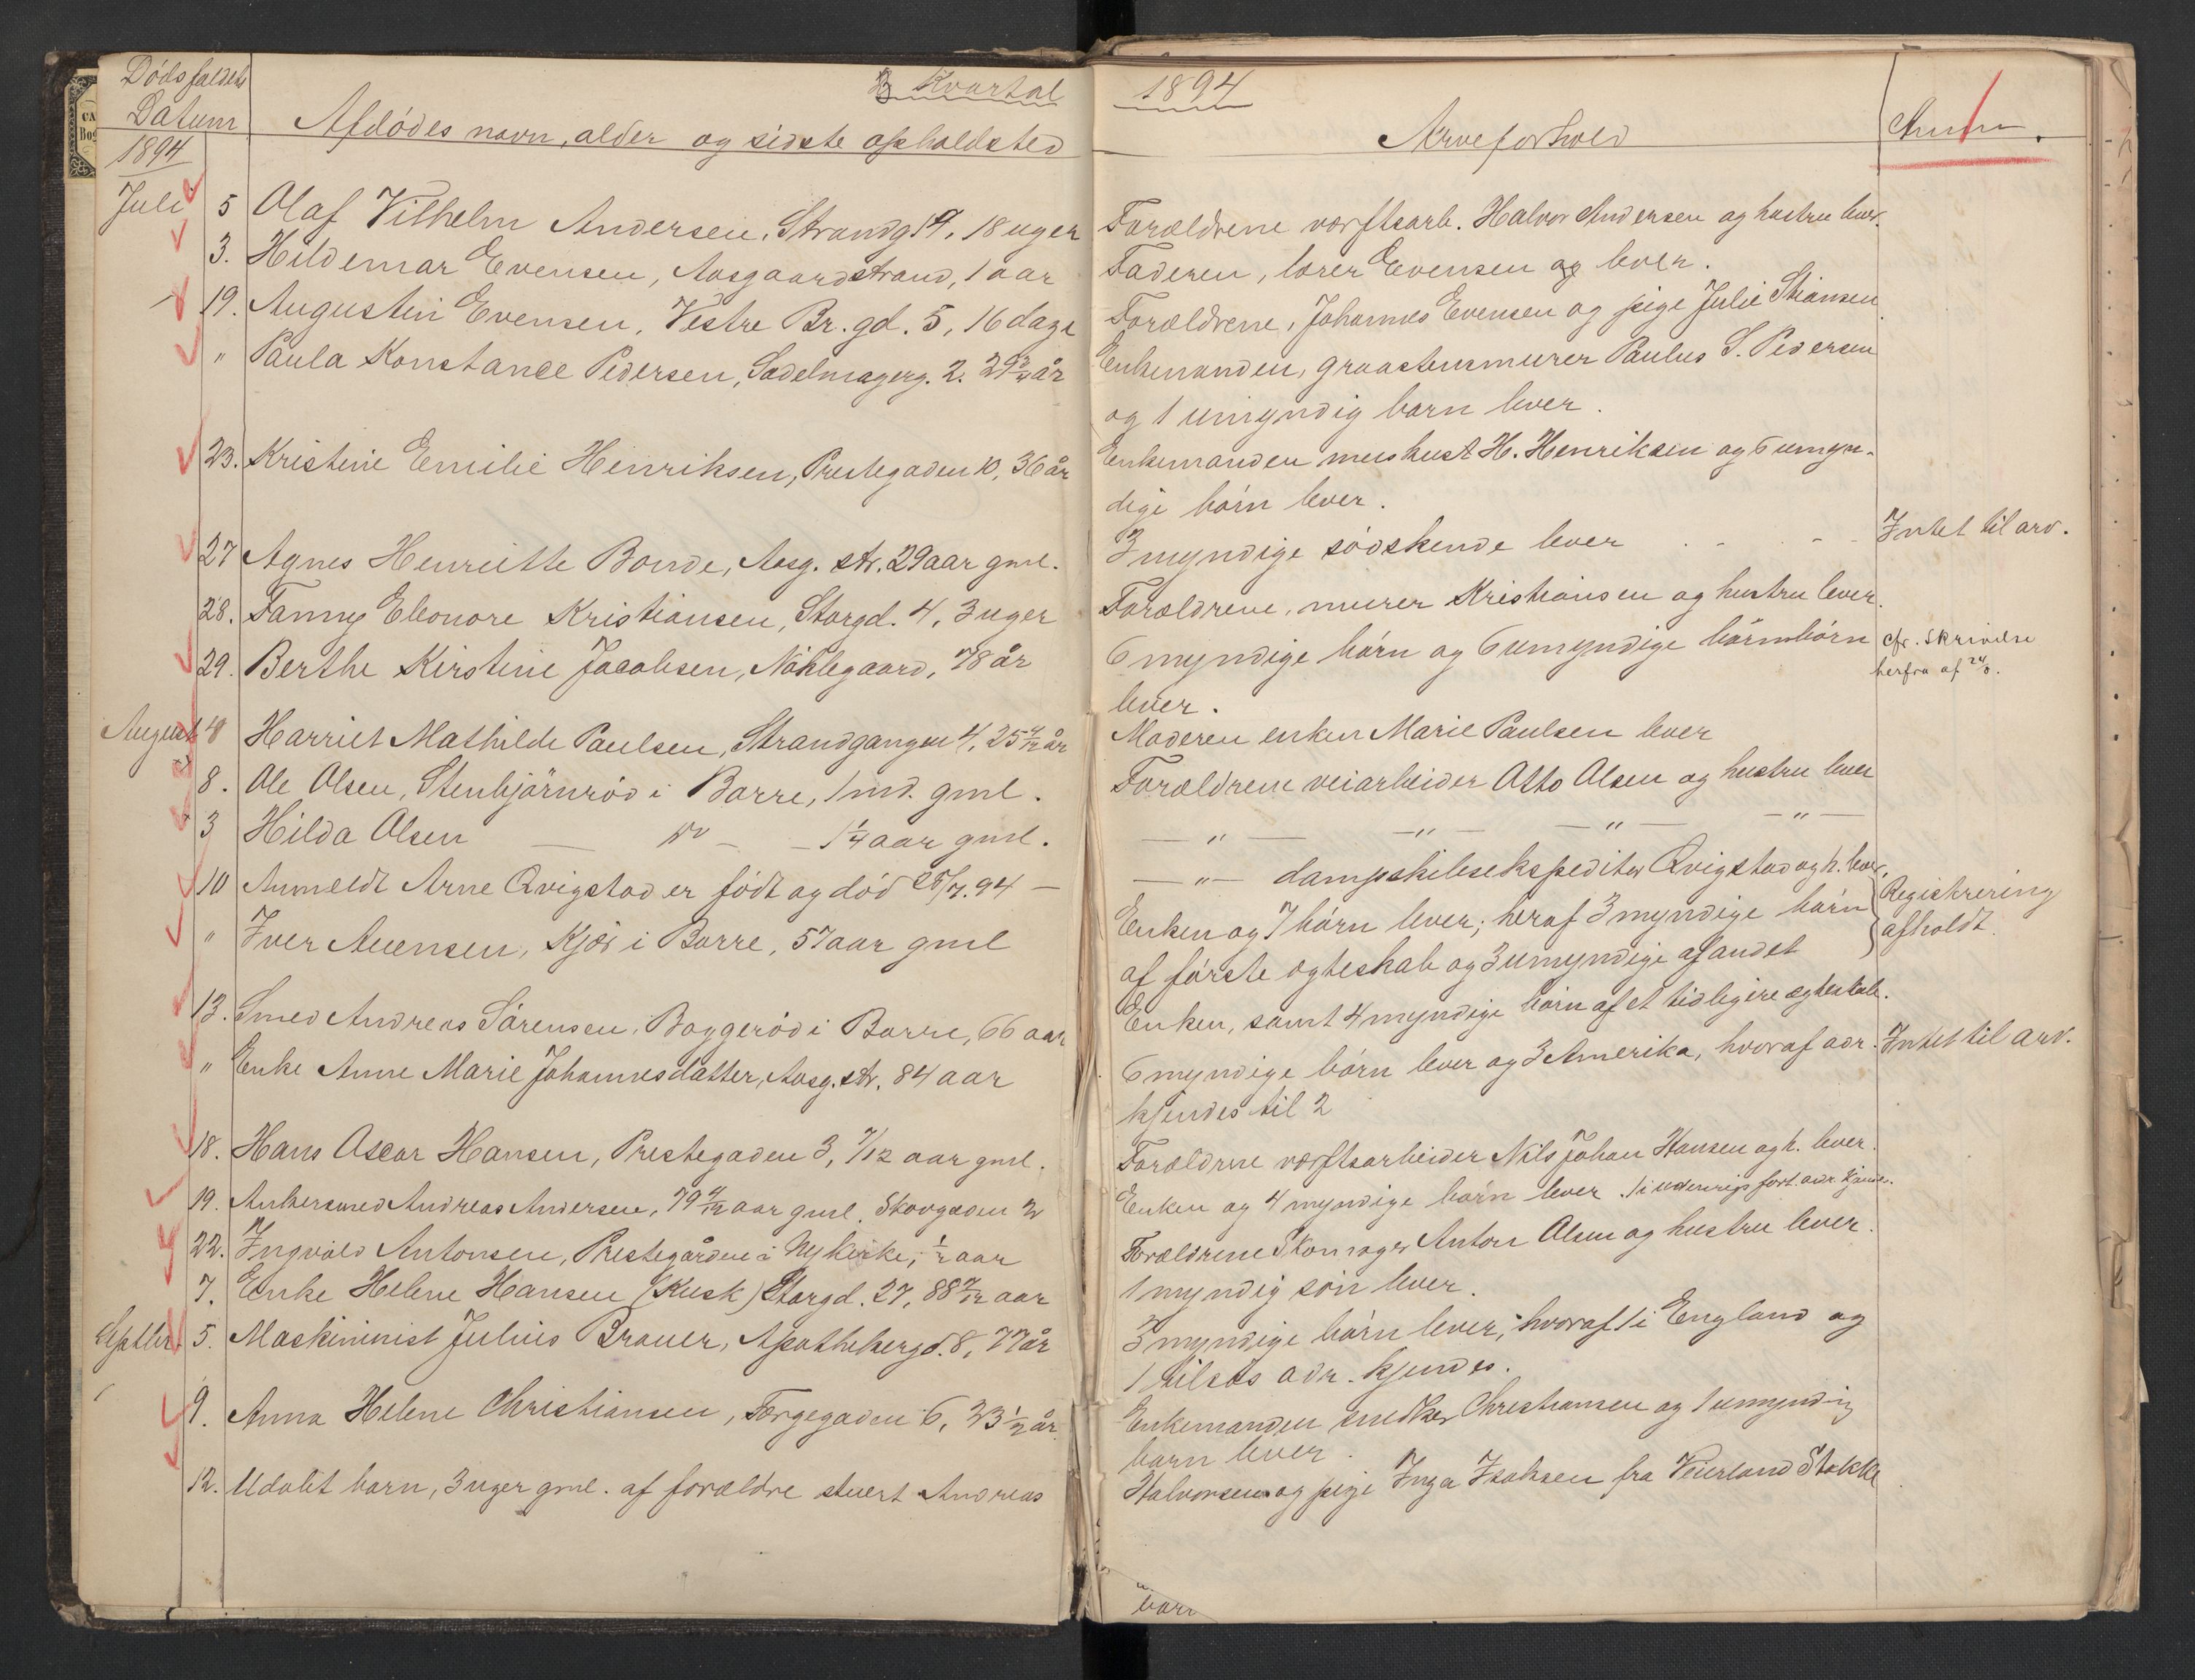 Dødsfaldets
Datum
3 Kvartal
Afdødes navn, alder og sidste opholdsted
1894
Juli 5 Olaf Vilhelm Andersen, Strandg 19, 18 uger
3. Hildemar Evensen, Aasgaardstrand, 1 aar
19. Augustin Evensen, Vestre Br. gd. 5, 16 dage
" Paula Konstance Pedersen, Sadelmagerg. 2.
23. Kristine Emilie Henriksen, Prestegaden 10, 36 år
27 Agnes Henriette Bonde, Aasg. str. 29 aar gml.
28. Fanny Eleonore Kristiansen, Storgd. 4, 3 uger
29. Berthe Kirstine Jacobsen, Nøklegaard, 78 år
August 4 Harriet Mathilde Paulsen, Strandgangen 4, 25 4/12 år
8. Ole Olsen, Stenbjörnrød i Borre, 1 md. gml.
3 Hilda Olsen — do — 1 1/4 aar gml.
10 Anmeldt Arne Qvigstad er født og død 25/7. 94 —
" Iver Auensen, Kjær i Borre, 57 aar gml
13. Smed Andreas Sørensen, Boggerød i Borre, 66 aar
" Enke Anne Marie Johannesdatter, Aasg. str. 84 aar
18. Hans Oscar Hansen, Prestegaden 3, 7/12 aar gml.
19. Ankersmed Andreas Andersen, 79 4/12 aar gml. Skovgaden 2
22. Ingvald Antonsen, Prestegården i Nykirke, 1/2 aar
7. Enke Helene Hansen (Kusk) Storgd. 27, 88 7/12 aar
Septbr. 5. Maskininist Julius Brauer, Apothekergd. 8, 77 år
9. Anna Helene Christiansen, Færgegaden 6, 23 1/2 år
12. Udøbt barn, 3 uger gml. af forældre stuert Andreas
1894
Arveforhold
Anm.
Forældrene værftsarb. Halvor Andersen og hustru lever.
Faderen, lærer Evensen og lever.
Forældrene, Johannes Evensen og pige Julie Stiansen
Enkemanden, graastensmurer Paulus S. Pedersen
og 1 umyndig barn lever.
Enkemanden H. Henriksen og 6 umyn-
dige børn lever.
3 myndige sødskende lever - - - - Intet til arv.
Forældrene, murer Kristiansen og hustru lever.
6 myndige børn og 6 umyndige børnebørn cfr. skrivelse
herfra af 24/8.
lever.
Moderen enken Marie Paulsen lever
Forældrene veiarbeider Otto Olsen og hustru lever
— " — — " — — " — — " —
— " — dampskibsekspeditør Qvigstad og h. lever.
Enken og 7 børn lever; heraf 3 myndige børn Registrering
af første egteskab og 3 umyndige af andet afholdt.
Enken, samt 4 myndige børn af et tidligere ægteskab.
6 myndige børn lever og 3 Amerika, hvoraf adr. Intet til arv.
kjendes til 2
Forældrene værftsarbeider Nils Johan Hansen og h. lever.
Enken og 4 myndige børn lever. 1 i udenrigs fart. adr. kjendes.
Forældrene Skomager Anton Olsen og hustru lever.
1 myndig søn lever.
3 myndige børn lever, hvoraf 1 i England og
1 tilsøs adr. kjendes.
Enkemanden snedker Christiansen og 1 umyndig
barn lever.
Halvorsen og pige Inga Isaksen fra Veierland Stokke
barn